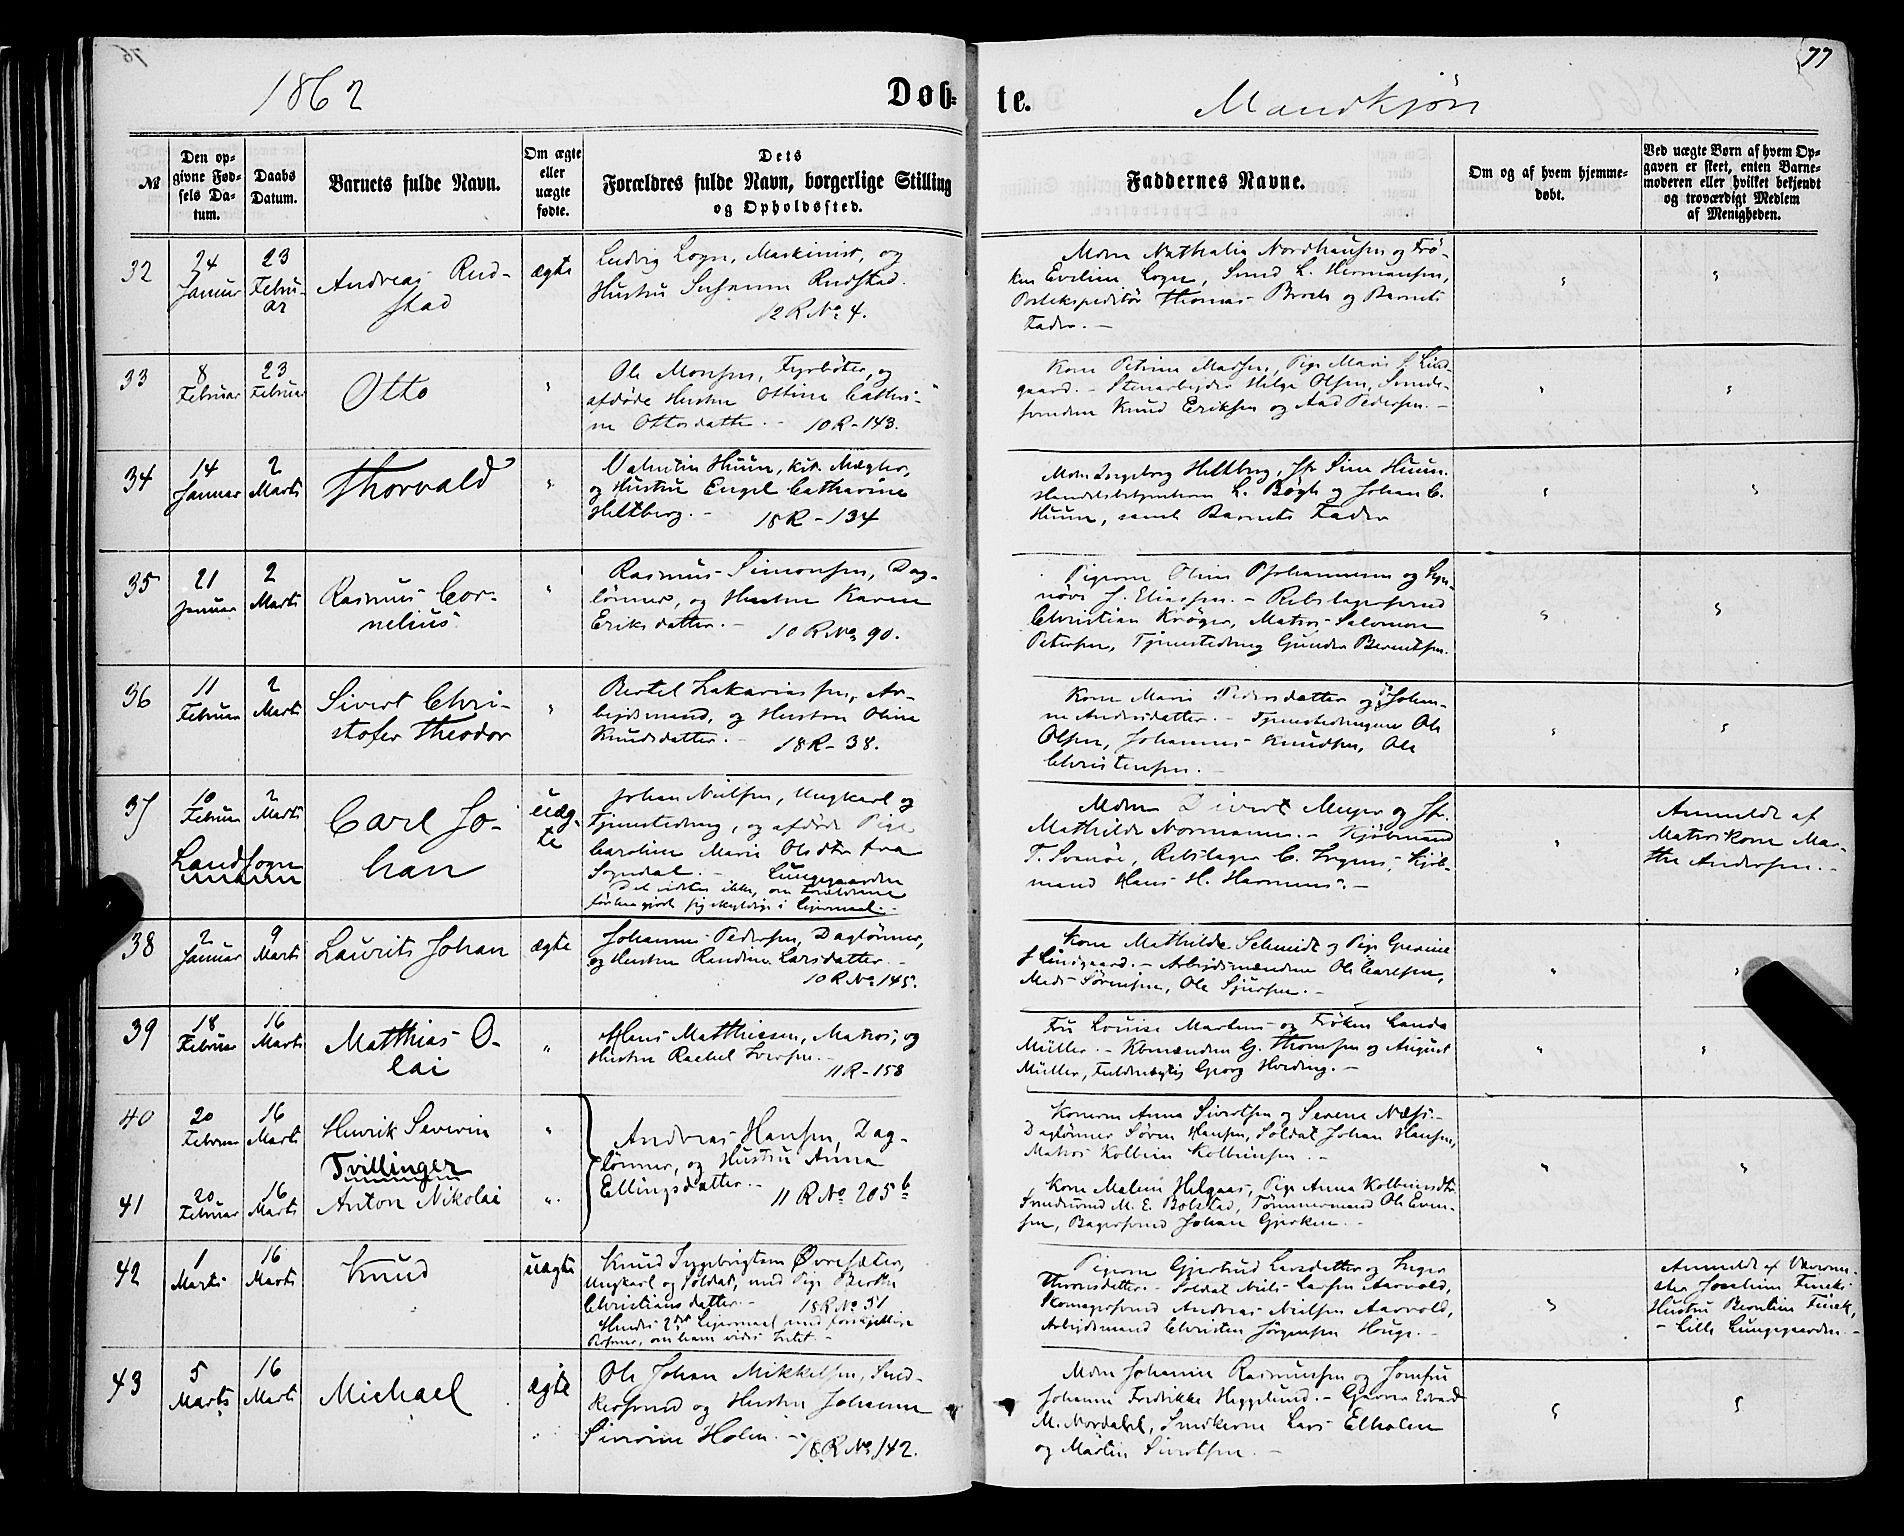 76
77
1862
Døb-
te.
Mandkjøn
№
Den op-
givne Fød-
sels Da-
tum.
Daabs
Datum.
Barnets fulde Navn.
Om ægte
eller
uægte
fødte.
Dets
Forældres fulde Navn, borgerlige Stilling
og Opholdssted.
Faddernes Navne.
Om og af hvem hjemme-
døbt.
Ved uægte Børn af hvem Op-
gaven er skeet, enten Barne-
moderen eller hvilket bekjendt
og troværdigt Medlem
af Menigheden.
32
24
Januar
23
Febru-
ar
Andreas Rud-
stad
ægte
Ludvig Logn, Maskinist, og
Hustru Susanna Rudstad.
12 R No 4.
Mdm Nathalia Nordhausen og Frø-
ken Eveline Logn, Smed L. Hermansen,
Postekspeditør Thomas Broch og Barnets
Fader. –
33
8
Februar
23
Februar
Otto
"
Ole Monsen, Fyrbøter, og
afdøde Hustru Ottine Cathri-
ne Ottosdatter. – 10 R – 143.
Kone Petrine Madsen, Pige Marie J Lind-
gaard. – Stenarbejder Helge Olsen, Smede-
svendene Knud Eriksen og Aad Pedersen. –
34
14
Januar
2
Marts
Thorvald
"
Valentin Huun, kst. Mægler,
og Hustru Engel Catharina
Heltberg. – 18 R – 134
Mdm Ingeborg Heltberg, Jfr Sina Huun.
Handelsbetjentene L. Bøgh og Johan C.
Huun, samt Barnets Fader
35
21
Januar
2
Marts
Rasmus Cor-
nelius
"
Rasmus Simonsen, Dag-
lønner, og Hustru Karen
Eriksdatter. – 10 R No 90.
Pigerne Oline Johannesen og Syn-
nøve J. Eliassen. – Rebslagersvend
Christian Krøger, Matros Salomon
Petersen, Tjenestedreng Gunder Berentsen.
36
11
Februar
2
Marts
Sivert Chri-
stofer Theodor
"
Bertel Zakariassen, Ar-
bejdsmand, og Hustru Oline
Knudsdatter. – 18 R – 38.
Kone Marie Pedersdatter og Johan-
ne Andersdatter. – Tjenestedrengene Ole
Olsen, Johannes Knudsen, Ole
Christensen. –
37
10
Februar
2
Marts
Landsogn
Carl Jo-
han
uæg-
te
Johan Nielsen, Ungkarl og
Tjenestedreng, og afdøde Pige
Caroline Marie Olsdtr fra
Sogndal. – Lungegaarden
Det vides ikke, om Forældrene
før have gjort sig skyldige i Lejermaal. –
Mdm Sivert Meyer og Jfr.
Mathilde Normann. – Kjøbmand
T. Svanøe, Rebslager C. Irgens, Kjøb-
mand Hans H. Harmens. –
Anmeldt af
Matroskone Mar-
the Andersen. –
38
2
Januar
9
Marts
Laurits Johan
ægte
Johannes Pedersen, Daglønner,
og Hustru Rendine Larsdatter. –
10 R No 145.
Kone Mathilde Schmidt og Pige Gurine
J Lindgaard. – Arbejdsmændene Ole Carlsen,
Mads Sørensen, Ole Sjursen. –
39
18
Februar
16
Marts
Matthias O-
lai
"
Hans Matthiesen, Matros, og
Hustru Rachel Iversen. –
11 R – 158
Fru Louise Martens og Frøken Landa
Müller. – Kbmændene G. Thomsen og August
Müller, Fuldmægtig Georg Hviding. –
40
20
Februar
16
Marts
Henrik Severin
"
Tvillinger
41
20
Februar
16
Marts
Anton Nikolai
"
Andreas Hansen, Dag-
lønner, og Hustru Anna
Ellingsdatter. –
11 R No 205 b
Konerne Anna Sivertsen og Severine Næss. –
Daglønner Søren Hansen, Soldat Johan Hansen,
Matros Kolbein Kolbeinsen. –
Kone Malene Helgaas, Pige Anna Kolbeinsdtr.
Smedsvend M. E. Bolstad, Tømmermand Ole Even-
sen, Bagersvend Johan Gjerken. –
42
1
Marts
16
Marts
Knud
uægte
Knud Ingebrigtsen Øvresæter,
Ungkarl og Soldat, med Pige Berthe
Christiansdatter. – 18 R No 51
Hendes 2det Lejermaal med forskjellige
Personer, om ham vides Intet. –
Pigerne Gjertrud Larsdatter og Inger
Thronsdatter. – Soldat Niels Larsen Aarvold,
Skomagersvend Andreas Nielsen Aarvold,
Arbejdsmand Christen Jørgensen Houge. –
Anmeldt af Væverme-
ster Joachim Finck's
Hustru Berntine Finck,
– Lille Lungegaarden. –
43
5
Marts
16
Marts
Michael
ægte
Ole Johan Mikkelsen, Sned-
kersvend og Hustru Johanne
Sivrine Holm. – 18 R No 142.
Mdm Johanne Rasmussen og Jomfru
Johanne Fredrikke Heggelund. – Garver Edvard
M. Nordahl, Snedkerne Lars Elholm
og Martin Sivertsen. –